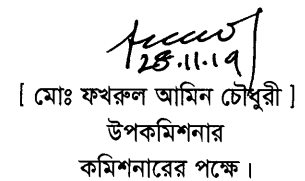 28.11.19
[ মোঃ ফখরুল আমিন চৌধুরী ]
উপকমিশনার
কমিশনারের পক্ষে ।